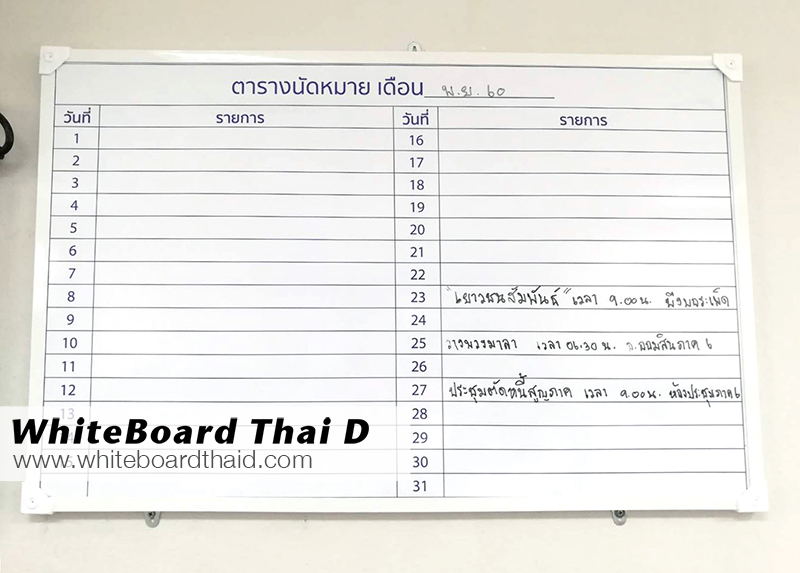 ตารางนัดหมาย เดือน พ.ย. 60
วันที่ รายการ วันที่ รายการ
1 16
2 17
3 18
4 19
5 20
6 21
7 22
8 23 "เยาวชนสัมพันธ์" เวลา 9.00 น. บึงบอระเพ็ด
9 24
10 25 วางพวงมาลา เวลา 06.30 น. ธ.ออมสินภาค 6
11 26
12 27 ประชุมตัดหนี้สูญภาค เวลา 9.00 น. ห้องประชุมภาค 6
13 28
29
30
31
WhiteBoard Thai D
www.whiteboardthaid.com